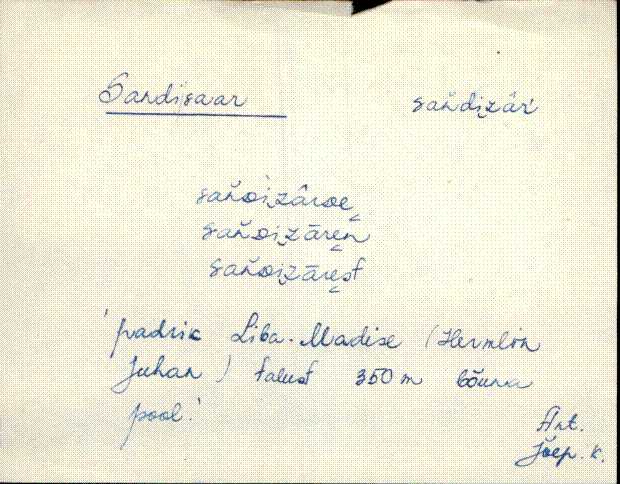 Sandisaar san̆di̮zâŕ
san̆Di̮zâroe̬
san̆Di̮zāre̬n
san̆Di̮zāre̬st
'padrik Liba-Madise (Hermlin
Juhan) talust 350 m lõuna
pool.'
Ant.
Jõep. k.